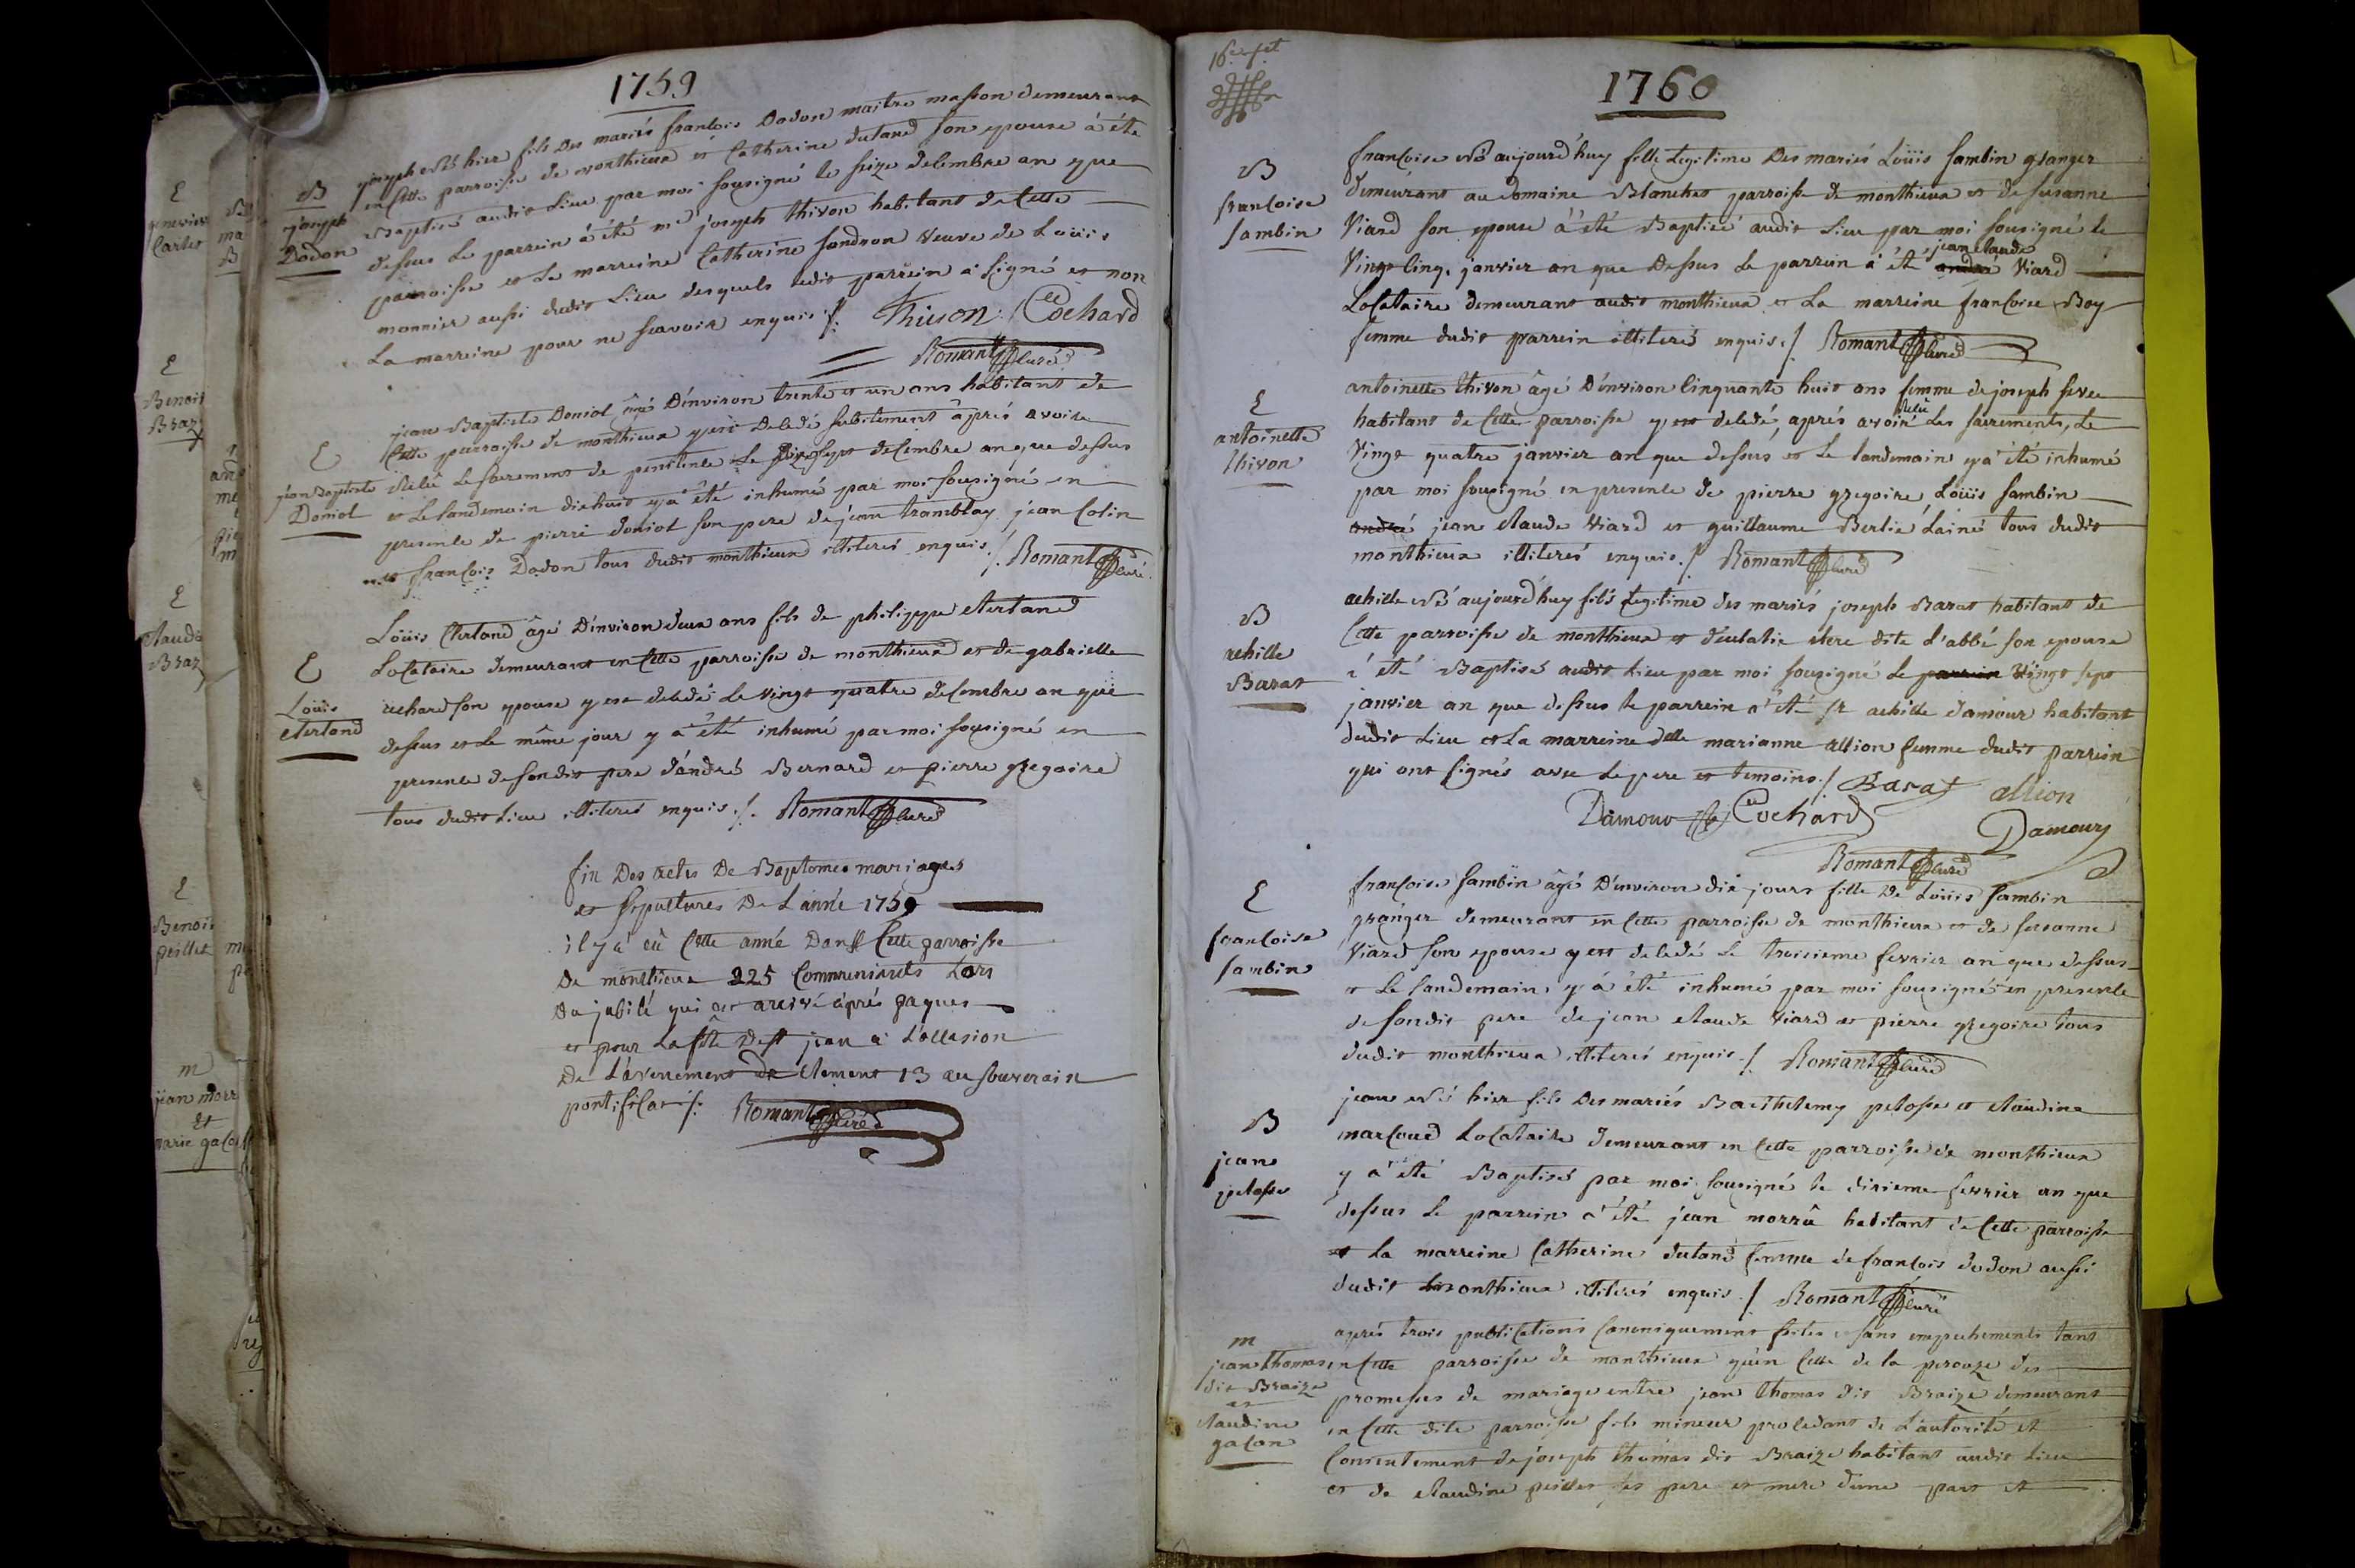 1759
B
joseph
Dodon
joseph Né hier fils Des mariés francois Dodon maitre masson demeurant
en cette parroisse de monthieux et Catherine dutand son epouse à été
Baptisé audit Lieu par moi sousigné le seize decembre an que
dessus Le parrein à été me joseph thivon habitant de cette
parroisse et Le marreine Catherine sondron veuve de Loüis
monnier aussi dudit Lieu desquels ledit parrein a signé et non
La marreine pour ne scavoir enquis ./. Thivon Cochard
Romant Curé
E
jean Baptiste
Doniol
jean Baptiste Doniol âgé D'environ trente et un ans habitant de
cette parroisse de monthieux y est decedé subitement âprés avoir
Recû Le sacrement de penitence Le dix sept decembre an que dessus
et Le landemain dix huit y a été inhumé par moi sousigné en
presence de pierre doniol son pere de jean tramblay jean Colin
et francois Dodon tous dudit monthieux illiterés enquis ./. Romant Curé
E
Loüis
Clertand
Loüis Clertand âgé D'environ deux ans fils de philippe Clertand
Locataire demeurant en cette parroisse de monthieux et de gabrielle
achard son epouse y est decedé Le vingt quatre decembre an que
dessus et Le même jour y a été inhumé par moi sousigné en
presence de son dit pere d'andré Bernard et pierre gregoire
tous dudit Lieu illiterés enquis ./. Romant Curé
fin Des actes De Baptemes mariages
et sepultures De L'année 1759
il y a eû Cette année Dans Cette parroisse
De monthieux 225 Communiants Lors
Du jubilé qui est arrivé àprés paques
et pour La fête De st jean a L'occasion
De L'avenement de Clement 13 au souverain
pontificat ./. Romant Curé
1760
B
francoise
sambin
francoise Né aujourd'huy fille Legitime Des mariés Loüis sambin granger
demeurant au domaine Blanchet parroisse de monthieux et de susanne
Viard son epouse à été Baptisé audit Lieu par moi sousigné le
Vingt cinq janvier an que Dessus Le parrein à été jean claude Viard
Locataire demeurant audit monthieux et La marreine francoise Boy
femme dudit parrein illiterés enquis ./ Romant Curé
E
antoinette
thivon
antoinette thivon âgé D'environ cinquante huit ans femme de joseph seve
habitant de Cette parroisse y est decedé, aprés avoir recû Les sacrements, Le
Vingt quatre janvier an que dessus et Le landemain y a été inhumé
par moi sousigné en presence de pierre gregoire Loüis sambin
jean claude Viard et guillaume Berlié L'ainé tous dudit
monthieux illiterés enquis ./ Romant Curé
B
achille
Barat
achille Né aujourd'huy fils Legitime des mariés joseph Barat habitant de
Cette parroisse de monthieux et d'eulalie dite L'abbé son epouse
à été Baptisé audit Lieu par moi sousigné Le Vingt sept
janvier an que dessus Le parrein à été sr achille damour habitant
dudit Lieu et La marreine delle marianne allion femme dudit parrein
qui ont signés avec Le pere et temoins ./ Barat allion
Damour fils Cochard Damour
Romant Curé
E
francoise
sambin
francoise sambin âgé D'environ dix jours fille de Loüis sambin
granger demeurant en Cette parroisse de monthieux et de susanne
Viard son epouse y est decedé Le troisieme fevrier an que dessus
et Le landemain y à été inhumé par moi sousigné en presence
de sondit pere de jean claude Viard et pierre gregoire tous
dudit monthieux illiterés enquis ./ Romant Curé
B
jean
pelosse
jean Né hier fils Des mariés Barthelemy pelosse et claudine
marcoud Locataire demeurant en Cette parroisse de monthieux
y à été Baptisé par moi sousigné le dixieme fevrier an que
dessus Le parrein à été jean morrû habitant de Cette parroisse
et La marreine Catherine dutand femme de francois dodon aussi
dudit monthieux illiterés enquis ./ Romant Curé
m
jean thomas
dit Braize
et
claudine
gacon
aprés trois publications Canoniquement faites sans empechements tant
en Cette parroisse de monthieux qu'en Celle de la perouze des
promesses de mariage entre jean thomas dit Braize demeurant
en Cette dite parroisse fils mineur procedant de L'autorité et
Consentement de joseph thomas dit Braize habitant audit Lieu
et de claudine peillet ses pere et mere d'une part et